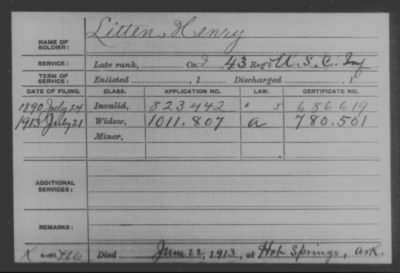 NAME OF SOLDIER: Litten, Henry
SERVICE: Late rank, Co. I, 43 Reg't U. S. C. Inf
TERM OF SERVICE: Enlisted , 1 Discharged , 1
DATE OF FILING. CLASS. APPLICATION NO. LAW. CERTIFICATE NO.
1890 July 24 Invalid, 823442 " 686619
1913 July 21 Widow, 1011.807 a 780.501
Minor,
ADDITIONAL SERVICES:
REMARKS:
Died June 22, 1913, at Hot Springs, Ark.